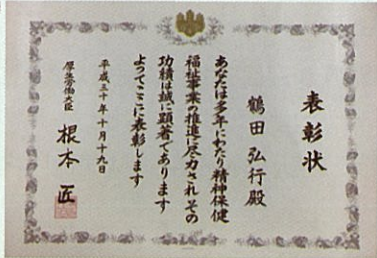 表彰状
鶴田 弘行殿
あなたは多年にわたり精神保健
福祉事業の推進に尽力されその
功績は誠に顕著であります
よってここに表彰します
平成三十年十月十九日
厚生労働大臣 根本 匠